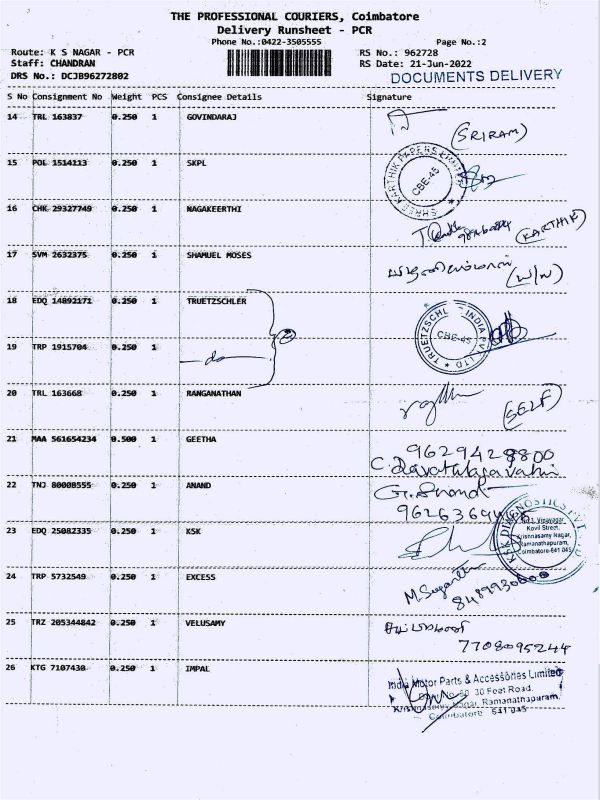 THE PROFESSIONAL COURIERS, Coimbatore
Delivery Runsheet - PCR
Phone No.:0422-3505555 Page No.:2
Route: K S NAGAR - PCR RS No.: 962728
Staff: CHANDRAN RS Date: 21-Jun-2022
DRS No.: DCJB96272802 DOCUMENTS DELIVERY
S No Consignment No Weight PCS Consignee Details Signature
14 TRL 163837 0.250 1 GOVINDARAJ
(SRIRAM)
15 POL 1514113 0.250 1 SKPL
SHREE KARTHIK PAPERS LIMITED
CBE-45
16 CHK 29327749 0.250 1 NAGAKEERTHI
(KARTHIK)
17 SVM 2632375 0.250 1 SHAMUEL MOSES
(W/N)
18 EDQ 14892171 0.250 1 TRUETZSCHLER
TRUETZSCHL INDIA PVT LTD
CBE-45
19 TRP 1915704 0.250 1 do
20 TRL 163668 0.250 1 RANGANATHAN
(SELF)
21 MAA 561654234 0.500 1 GEETHA
9629428800
22 TNJ 80008555 0.250 1 ANAND
G. Anand
23 EDQ 25082335 0.250 1 KSK
Kovil Street,
Krishnasamy Nagar,
Ramanathapuram,
Coimbatore-641 045
24 TRP 5732549 0.250 1 EXCESS
25 TRZ 205344842 0.250 1 VELUSAMY
7708095244
26 KTG 7107430 0.250 1 IMPAL
India Motor Parts & Accessories Limited
30 Feet Road,
Nagar, Ramanathapuram,
Coimbatore 641 045